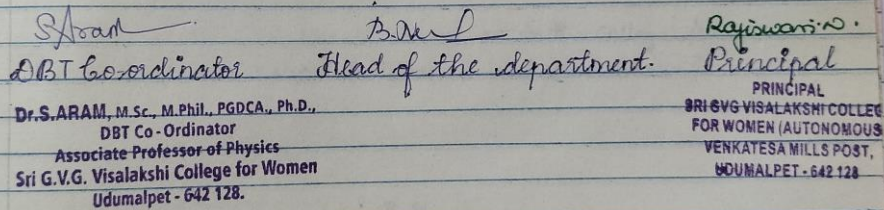 S Aram
Rajiswari.N.
DBT Co-ordinator Head of the department. Principal
Dr.S.ARAM, M.Sc., M.Phil., PGDCA., Ph.D.,
DBT Co - Ordinator
Associate Professor of Physics
Sri G.V.G. Visalakshi College for Women
Udumalpet - 642 128.
PRINCIPAL
SRI GVG VISALAKSHI COLLEG
FOR WOMEN (AUTONOMOUS
VENKATESA MILLS POST,
UDUMALPET - 642 128